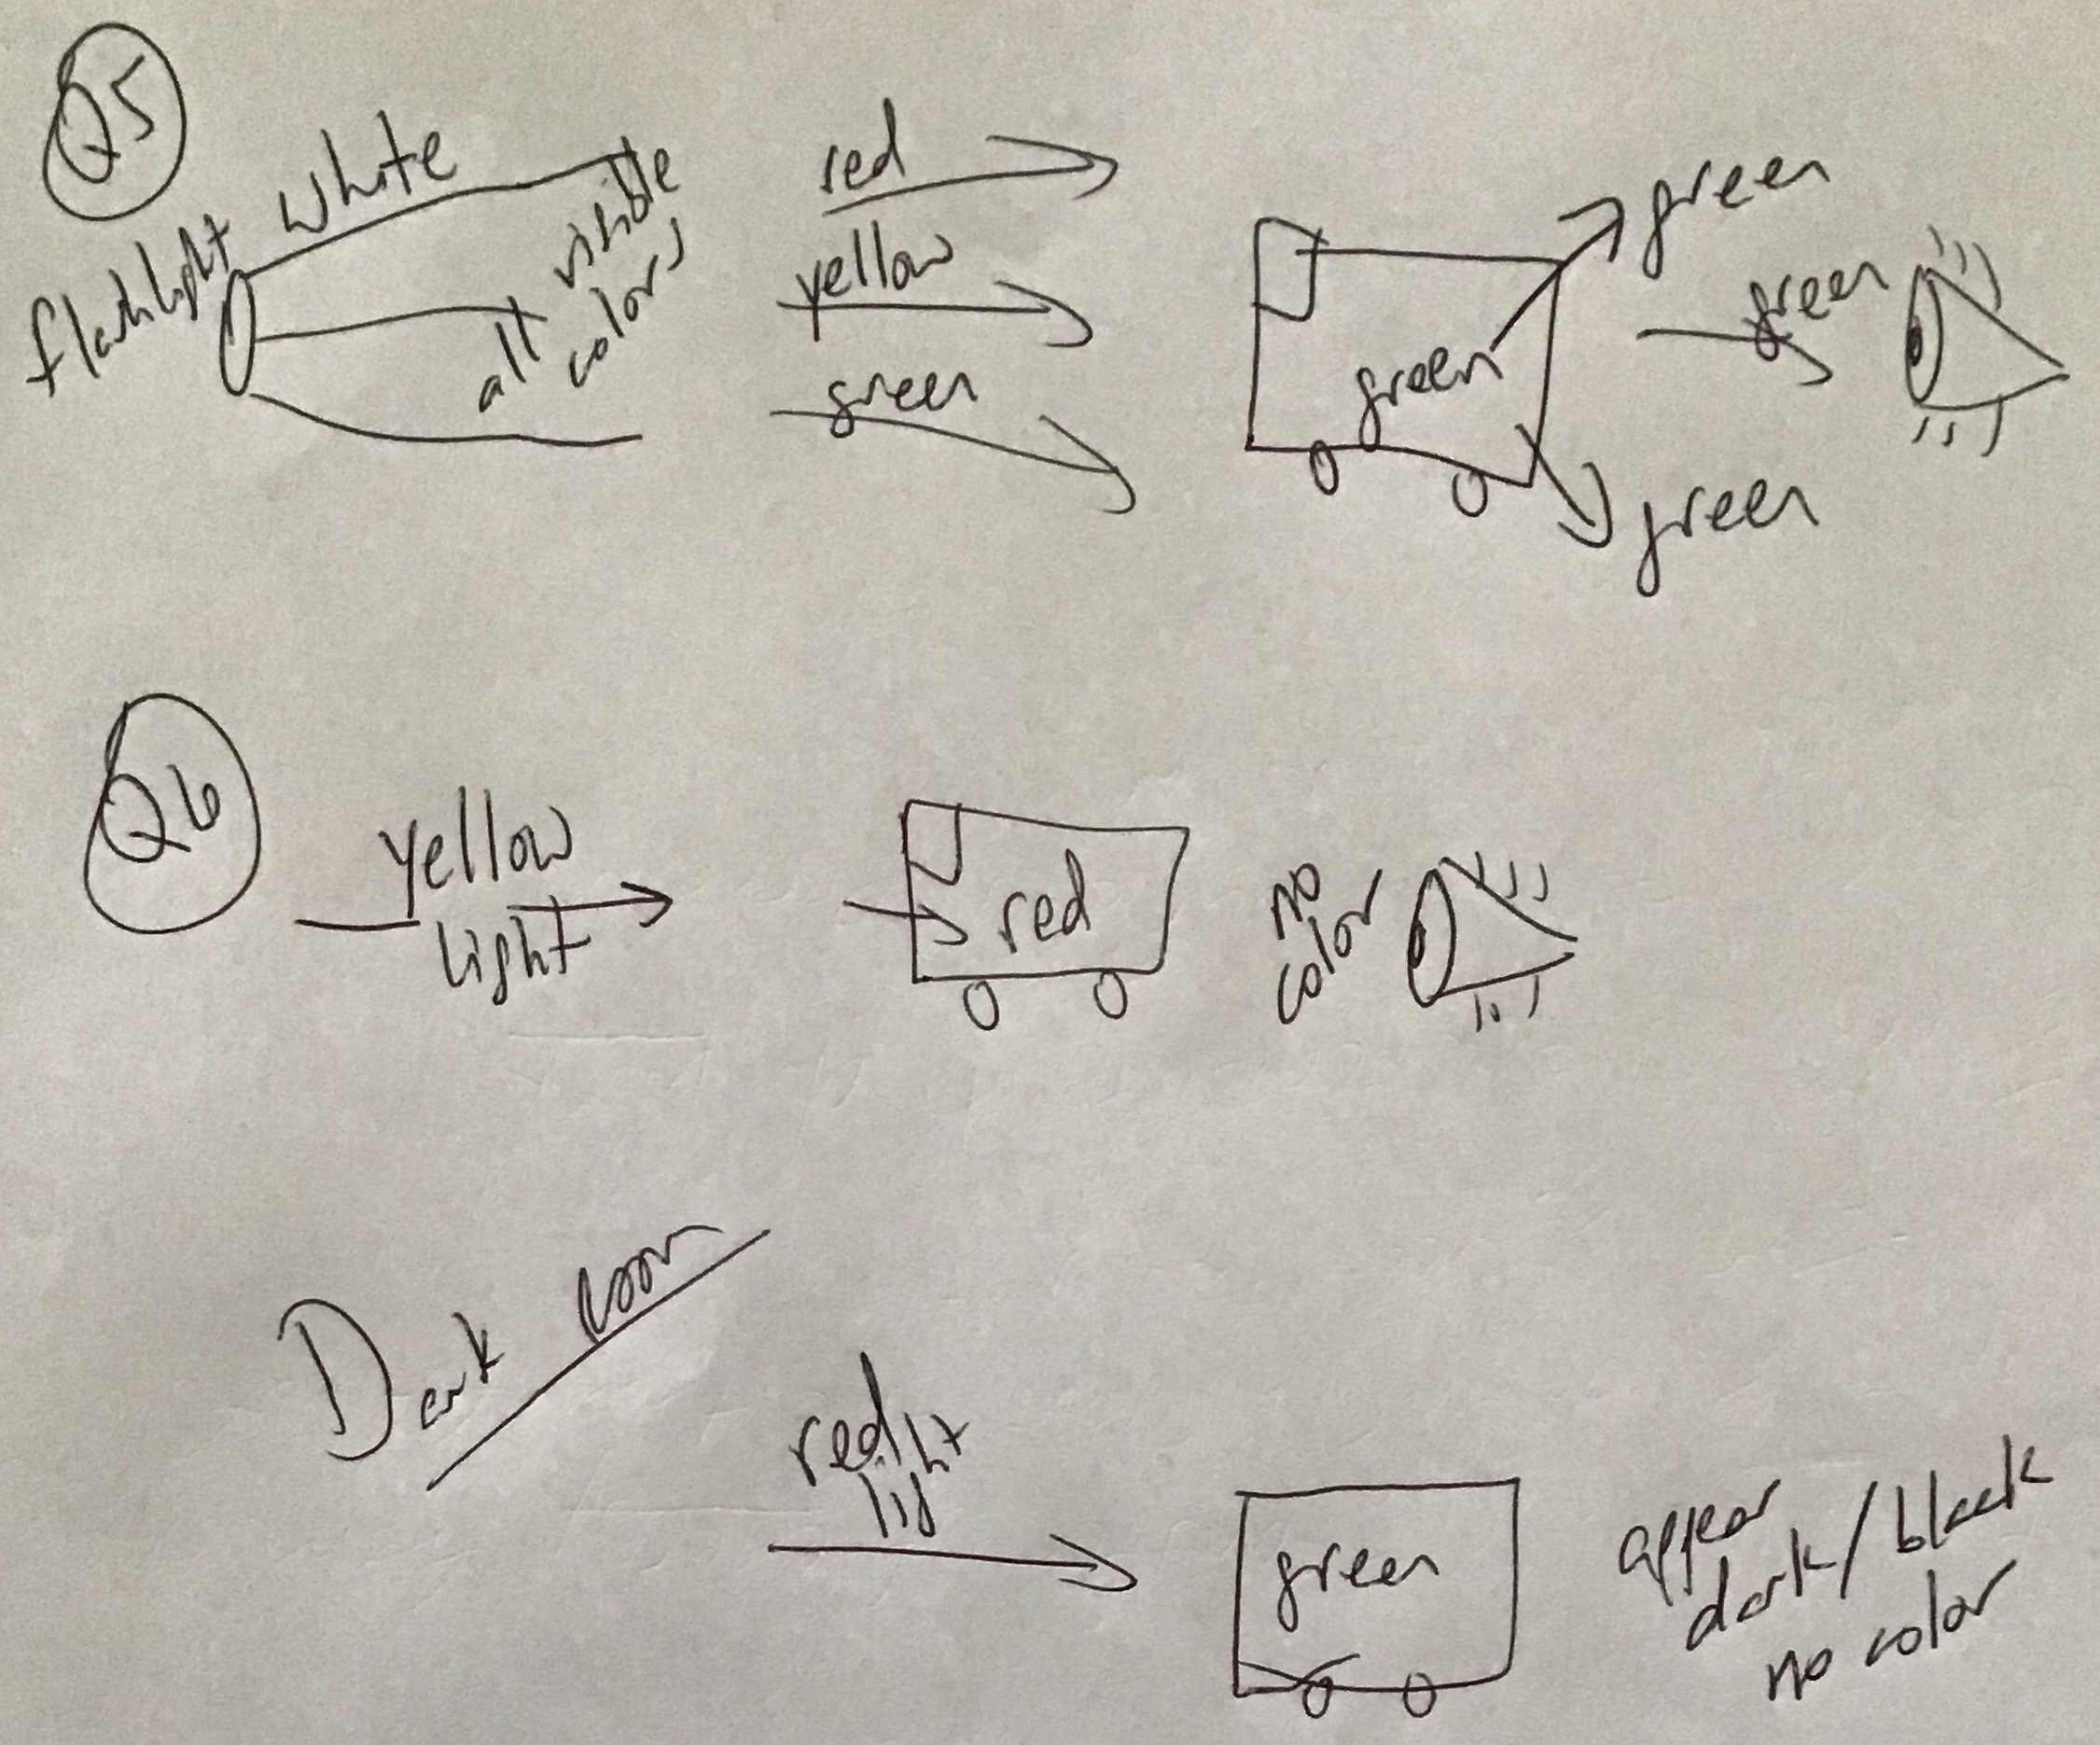 Q5
flashlight
white
all visible
colors
red
yellow
green
green
green
green
green
Q6
yellow
light
red
no
color
Dark room
red
light
green
appear
dark/black
no color